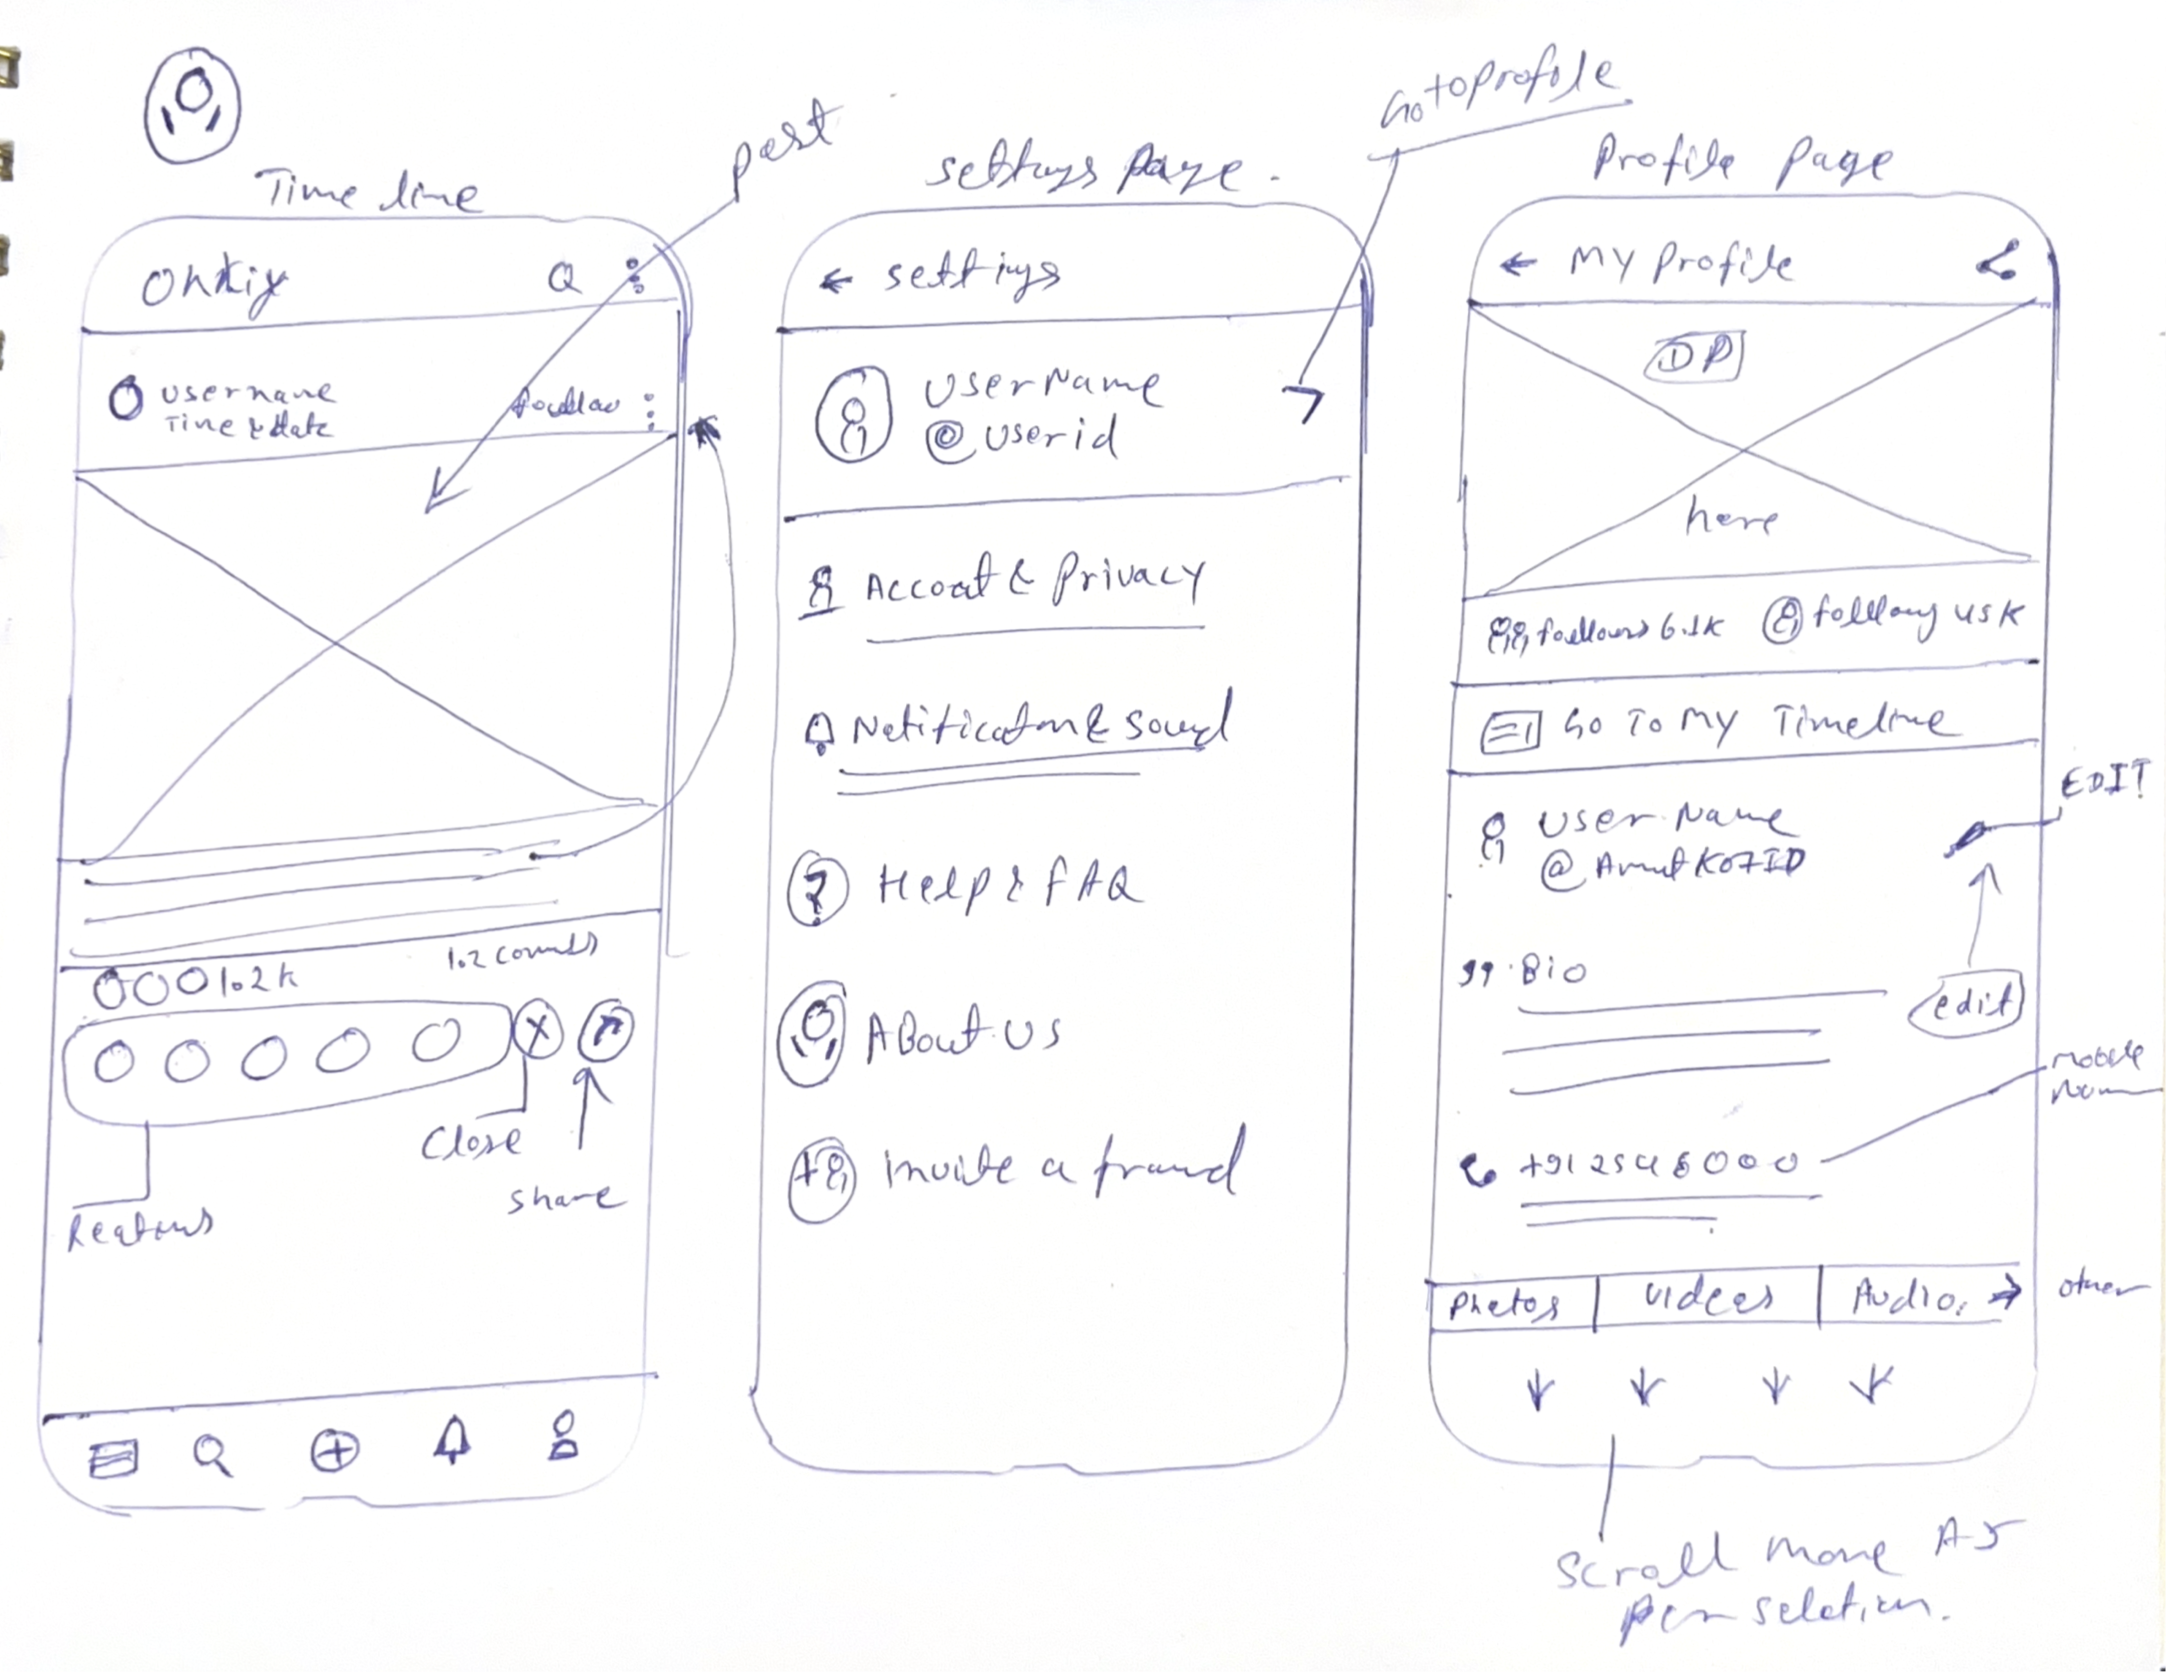 Time line
post
Q
username
Time & date
follow
1.2k
Close
share
settings page.
Go to profile
← settings
User Name
@ userid
Account & Privacy
Notification & sound
? Help & FAQ
About us
Invite a friend
Profile page
← My Profile
DP
here
followers 6.1K
following 45K
Go To My Timeline
EDIT
User Name
Bio
edit
mobile
+91 2545000
Photos
videos
Audio,
other
scroll more As
per seletion.